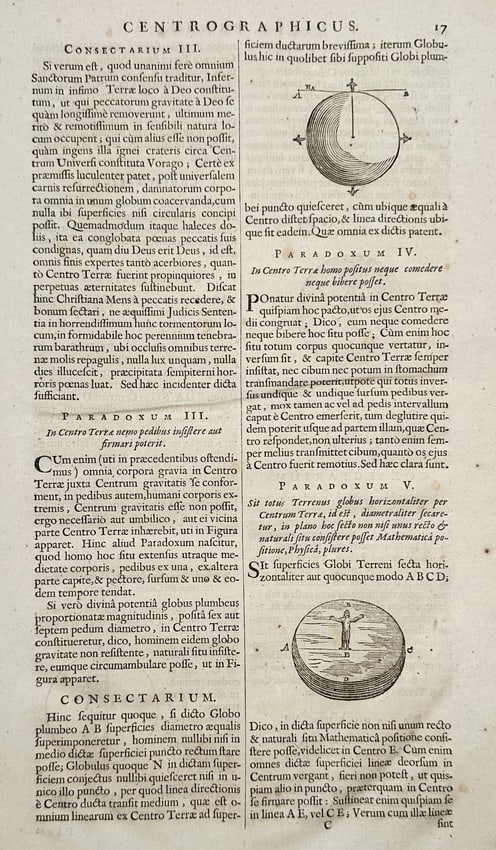 CENTROGRAPHICUS. 17
CONSECTARIUM III.
Si verum est, quod unanimi ferè omnium
Sanctorum Patrum consensu traditur, Infer-
num in infimo Terræ loco à Deo constitu-
tum, ut qui peccatorum gravitate à Deo se
quàm longissimè removerunt, ultimum me-
ritò & remotissimum in sensibili natura lo-
cum occupent; qui cùm alius esse non possit,
quàm ingens illa ignei crateris circa Cen-
trum Universi constituta Vorago; Certè ex
præmissis luculenter patet, post universalem
carnis resurrectionem, damnatorum corpo-
ra omnia in unum globum coacervanda, cum
nulla ibi superficies nisi circularis concipi
possit. Quemadmodum itaque haleces do-
liis, ita ea conglobata pœnas peccatis suis
condignas, quam diu Deus erit Deus, id est,
omnis finis expertes tantò acerbiores, quan-
tò Centro Terræ fuerint propinquiores, in
perpetuas æternitates sustinebunt. Discat
hinc Christiana Mens à peccatis recedere, &
bonum sectari, ne æquissimi Judicis Senten-
tia in horrendissimum hunc tormentorum lo-
cum, in formidabile hoc perennium tenebra-
rum barathrum, ubi occlusis omnibus terre-
næ molis repagulis, nulla lux unquam, nulla
dies illucescit, præcipitata sempiterni hor-
roris pœnas luat. Sed hæc incidenter dicta
sufficiant.
PARADOXUM III.
In Centro Terræ nemo pedibus insistere aut
firmari poterit.
CUm enim (uti in præcedentibus ostendi-
mus) omnia corpora gravia in Centro
Terræ juxta Centrum gravitatis se confor-
ment, in pedibus autem, humani corporis ex-
tremis, Centrum gravitatis esse non possit,
ergo necessariò aut umbilico, aut ei vicina
parte Centro Terræ inhærebit, uti in Figura
apparet. Hinc aliud Paradoxum nascitur,
quod homo hoc situ extensus utraque me-
dietate corporis, pedibus ex una, ex altera
parte capite, & pectore, sursum & uno & eo-
dem tempore tendat.
Si verò divinâ potentiâ globus plumbeus
proportionatæ magnitudinis, posita sex aut
septem pedum diametro, in Centro Terræ
constitueretur, dico, hominem eidem globo
gravitate non resistente, naturali situ insiste-
re, eumque circumambulare posse, ut in Fi-
gura apparet.
CONSECTARIUM.
Hinc sequitur quoque, si dicto Globo
plumbeo A B superficies diametro æqualis
superimponeretur, hominem nullibi nisi in
medio dictæ superficiei puncto rectum stare
posse; Globulus quoque N in dictam super-
ficiem conjectus nullibi quiesceret nisi in u-
nico illo puncto, per quod linea directionis
è Centro ducta transit medium, quæ est o-
mnium linearum ex Centro Terræ ad super-
ficiem ductarum brevissima; iterum Globu-
lus hic in quolibet sibi suppositi Globi plum-
A
B
bei puncto quiesceret, cùm ubique æquali à
Centro distet spacio, & linea directionis ubi-
que sit eadem. Quæ omnia ex dictis patent.
PARADOXUM IV.
In Centro Terræ homo positus neque comedere
neque bibere posset.
POnatur divinâ potentiâ in Centro Terræ
quispiam hoc pacto, ut os ejus Centro me-
dii congruat; Dico, eum neque comedere
neque bibere hoc situ posse; Cùm enim hoc
situ totum corpus quocunque vertatur, in-
versum sit, & capite Centro Terræ semper
insistat, nec cibum nec potum in stomachum
transmandare poterit, utpote qui totus inver-
sus undique & undique sursum pedibus ver-
gat, mox tamen ac vel ad pedis intervallum
caput è Centro emerserit, tum deglutire qui-
dem poterit usque ad partem illam, quæ Cen-
tro respondet, non ulterius; tantò enim sem-
per melius transmittet cibum, quantò os ejus
à Centro fuerit remotius. Sed hæc clara sunt.
PARADOXUM V.
Sit totus Terrenus globus horizontaliter per
Centrum Terræ, id est, diametraliter secare-
tur, in plano hoc secto non nisi unus recto &
naturali situ consistere posset Mathematicâ po-
sitione, Physicâ, plures.
SIt superficies Globi Terreni secta hori-
zontaliter aut quocunque modo A B C D;
B
A
C
E
D
Dico, in dicta superficie non nisi unum recto
& naturali situ Mathematicâ positione consi-
stere posse, videlicet in Centro E. Cùm enim
omnes dictæ superficiei lineæ deorsum in
Centrum vergant, fieri non potest, ut quis-
piam alio in puncto, præterquam in Centro
se firmare possit: Sustineat enim quispiam se
in linea A E, vel C E; Verùm cum illæ lineæ
C
sint